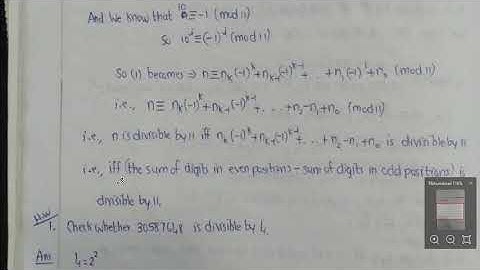 And we know that 10 ≡ -1 (mod 11)
So 10^i ≡ (-1)^i (mod 11)
So (1) becomes ⇒ n ≡ n_k(-1)^k + n_{k-1}(-1)^{k-1} + ... + n_1(-1)^1 + n_0 (mod 11)
i.e., n ≡ n_k(-1)^k + n_{k-1}(-1)^{k-1} + ... + n_2 - n_1 + n_0 (mod 11)
i.e., n is divisible by 11 iff n_k(-1)^k + n_{k-1}(-1)^{k-1} + ... + n_2 - n_1 + n_0 is divisible by 11
i.e., iff (the sum of digits in even positions - sum of digits in odd positions) is
divisible by 11.
H.W
1. Check whether is divisible by 4.
Ans 4 = 2^2